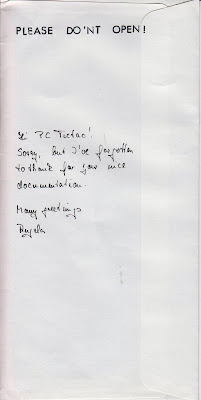 PLEASE DO'NT OPEN!
Hi PC Tictac!
Sorry, but I've forgotten
to thank for your nice
documentation.
Many greetings
Angela